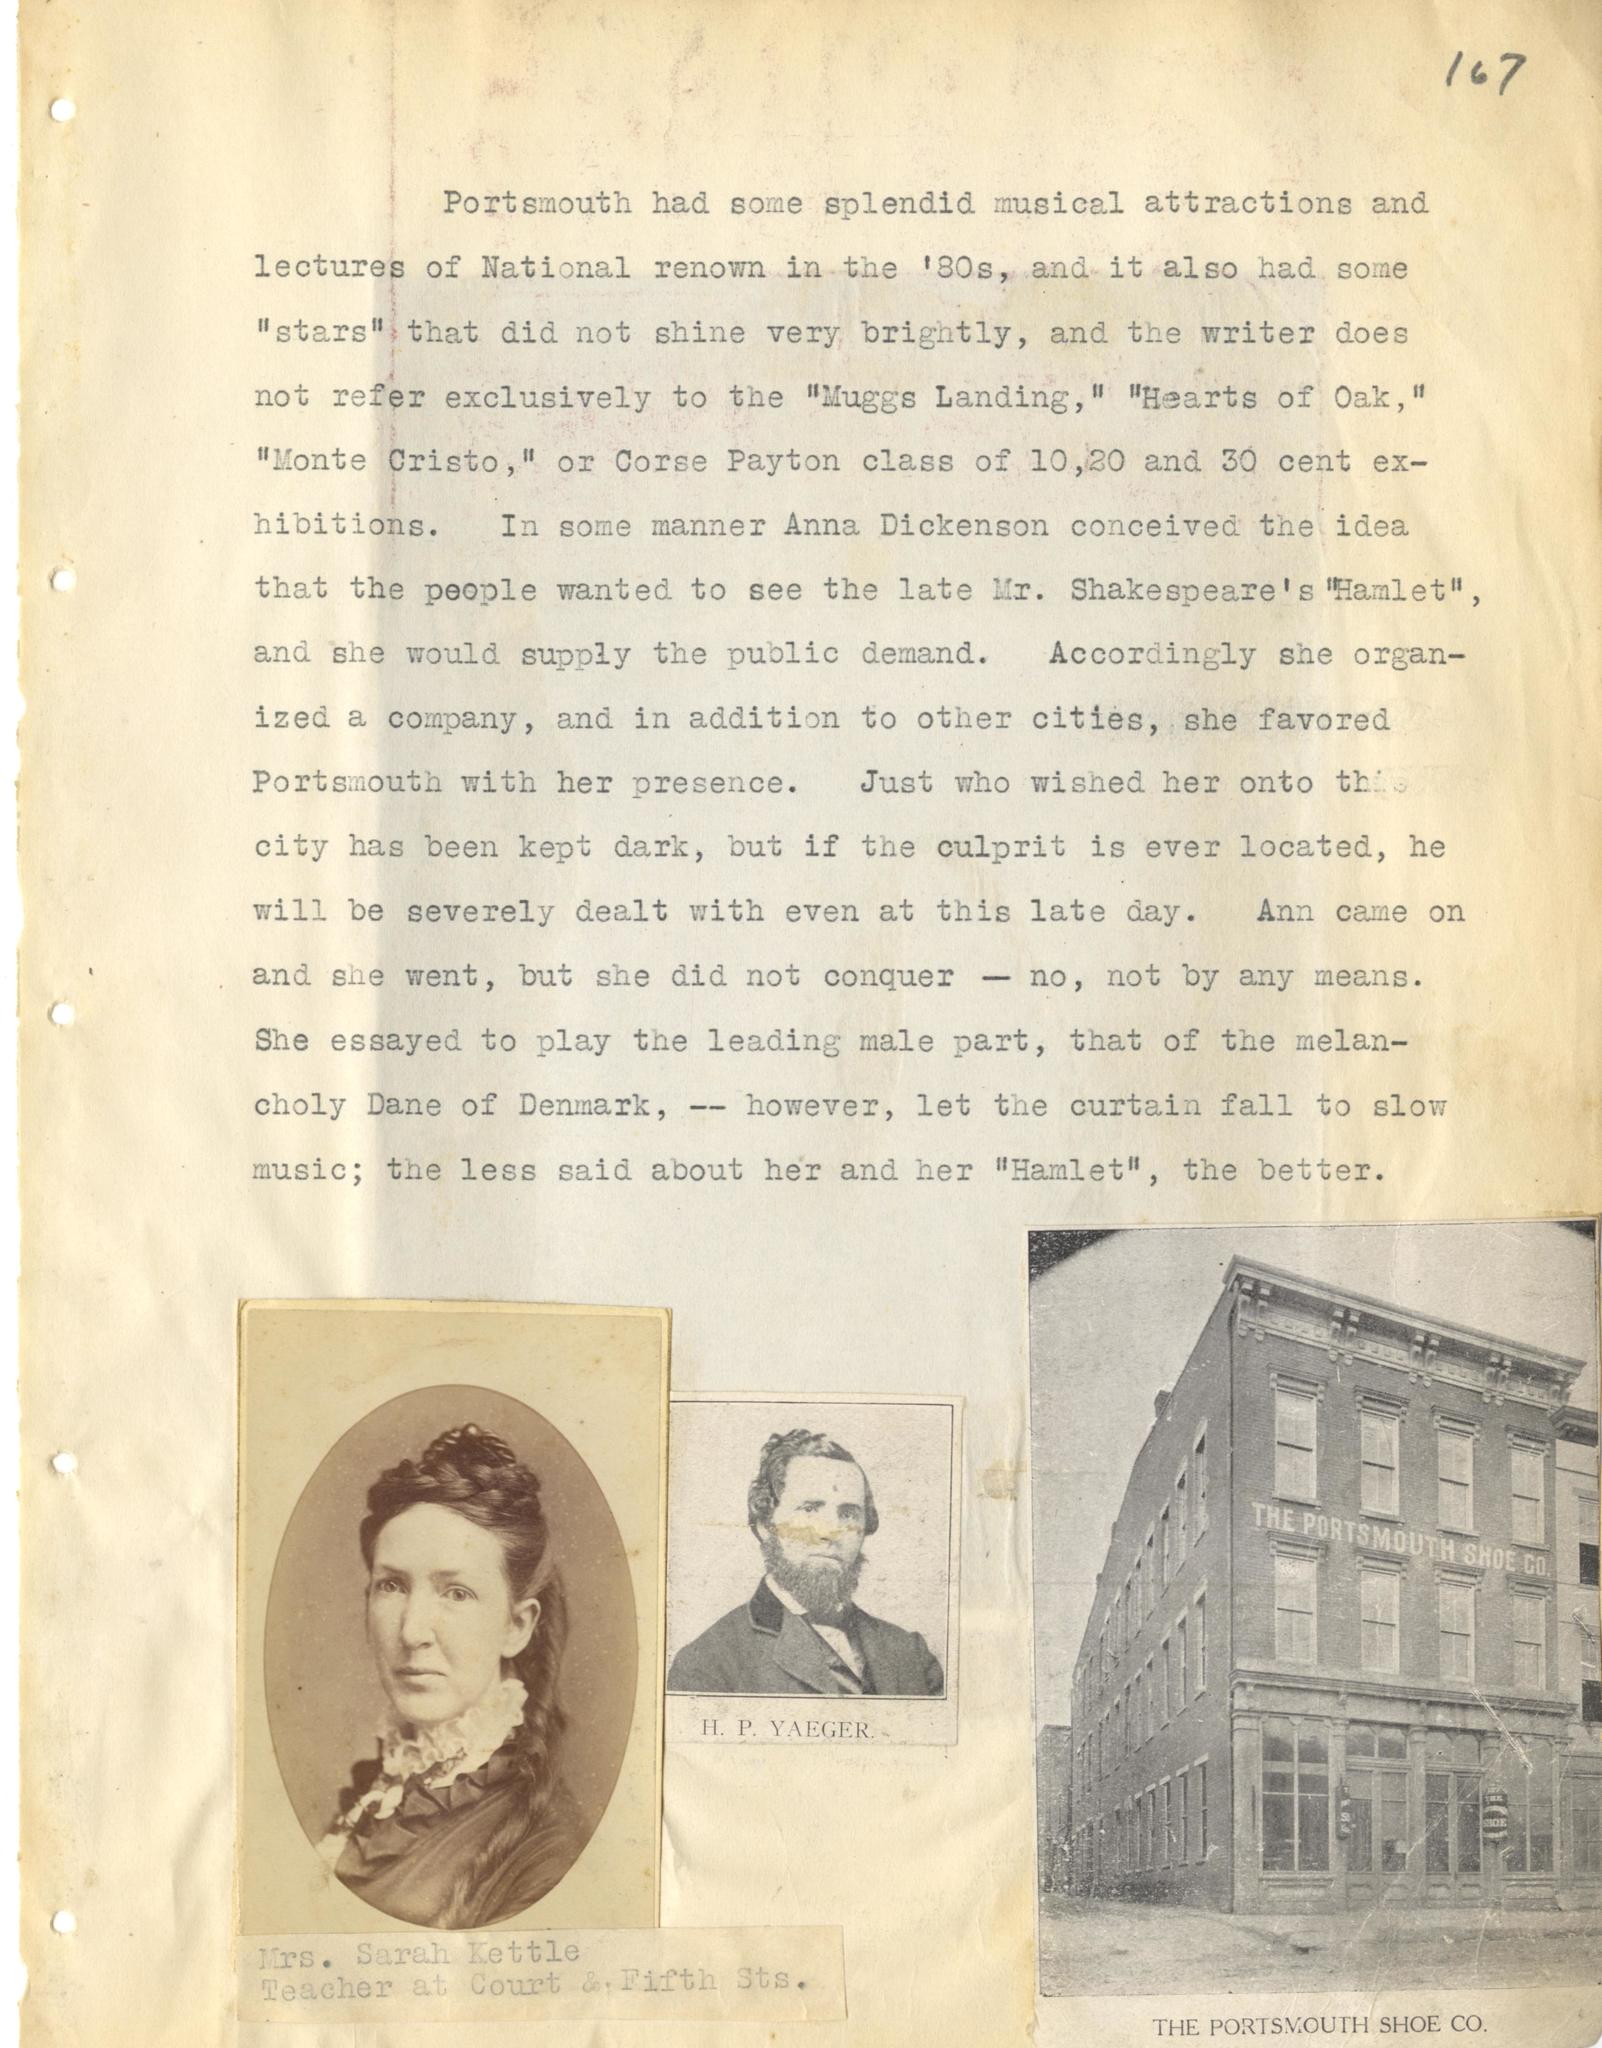 167
Portsmouth had some splendid musical attractions and
lectures of National renown in the '80s, and it also had some
"stars" that did not shine very brightly, and the writer does
not refer exclusively to the "Muggs Landing," "Hearts of Oak,"
"Monte Cristo," or Corse Payton class of 10,20 and 30 cent ex-
hibitions. In some manner Anna Dickenson conceived the idea
that the people wanted to see the late Mr. Shakespeare's "Hamlet",
and she would supply the public demand. Accordingly she organ-
ized a company, and in addition to other cities, she favored
Portsmouth with her presence. Just who wished her onto this
city has been kept dark, but if the culprit is ever located, he
will be severely dealt with even at this late day. Ann came on
and she went, but she did not conquer — no, not by any means.
She essayed to play the leading male part, that of the melan-
choly Dane of Denmark, -- however, let the curtain fall to slow
music; the less said about her and her "Hamlet", the better.
H. P. YAEGER.
Mrs. Sarah Kettle
Teacher at Court & Fifth Sts.
THE PORTSMOUTH SHOE CO.
THE
SHOE
THE PORTSMOUTH SHOE CO.